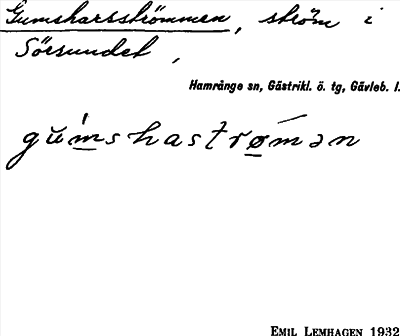 Gumsharsströmmen, ström i
Sörsundet,
Hamrånge sn, Gästrikl. ö. tg, Gävleb. l.
gŭḿshastrømən
EMIL LEMHAGEN 1932